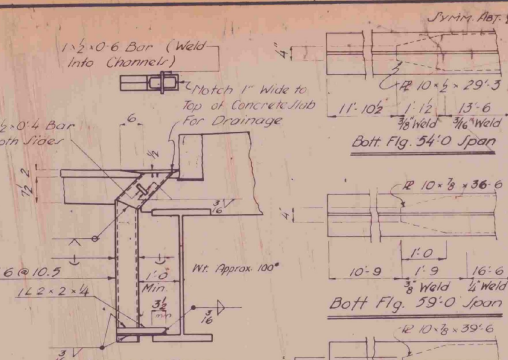 SYMM. ABT.
1 × ½ × 0·6 Bar (Weld
Into Channels)
Notch 1" Wide to
Top of Concrete Slab
For Drainage
6
½ × 0·4 Bar
oth Sides
½
2
7½
3/16
6 @ 10.5
1L 2 × 2 × ¼
1'-0"
Min.
3½
min
Wt. Approx. 100#
3/16
4"
PL 10 × ½ × 29'-3
11'-10½
1'-1½
13'-6
3/8" Weld
3/16" Weld
Bott Flg. 54'-0 Span
PL 10 × 7/8 × 36-6
4"
1'-0
10'-9
1'-9
16'-6
3/8" Weld
¼" Weld
Bott Flg. 59'-0 Span
PL 10 × 7/8 × 39'-6